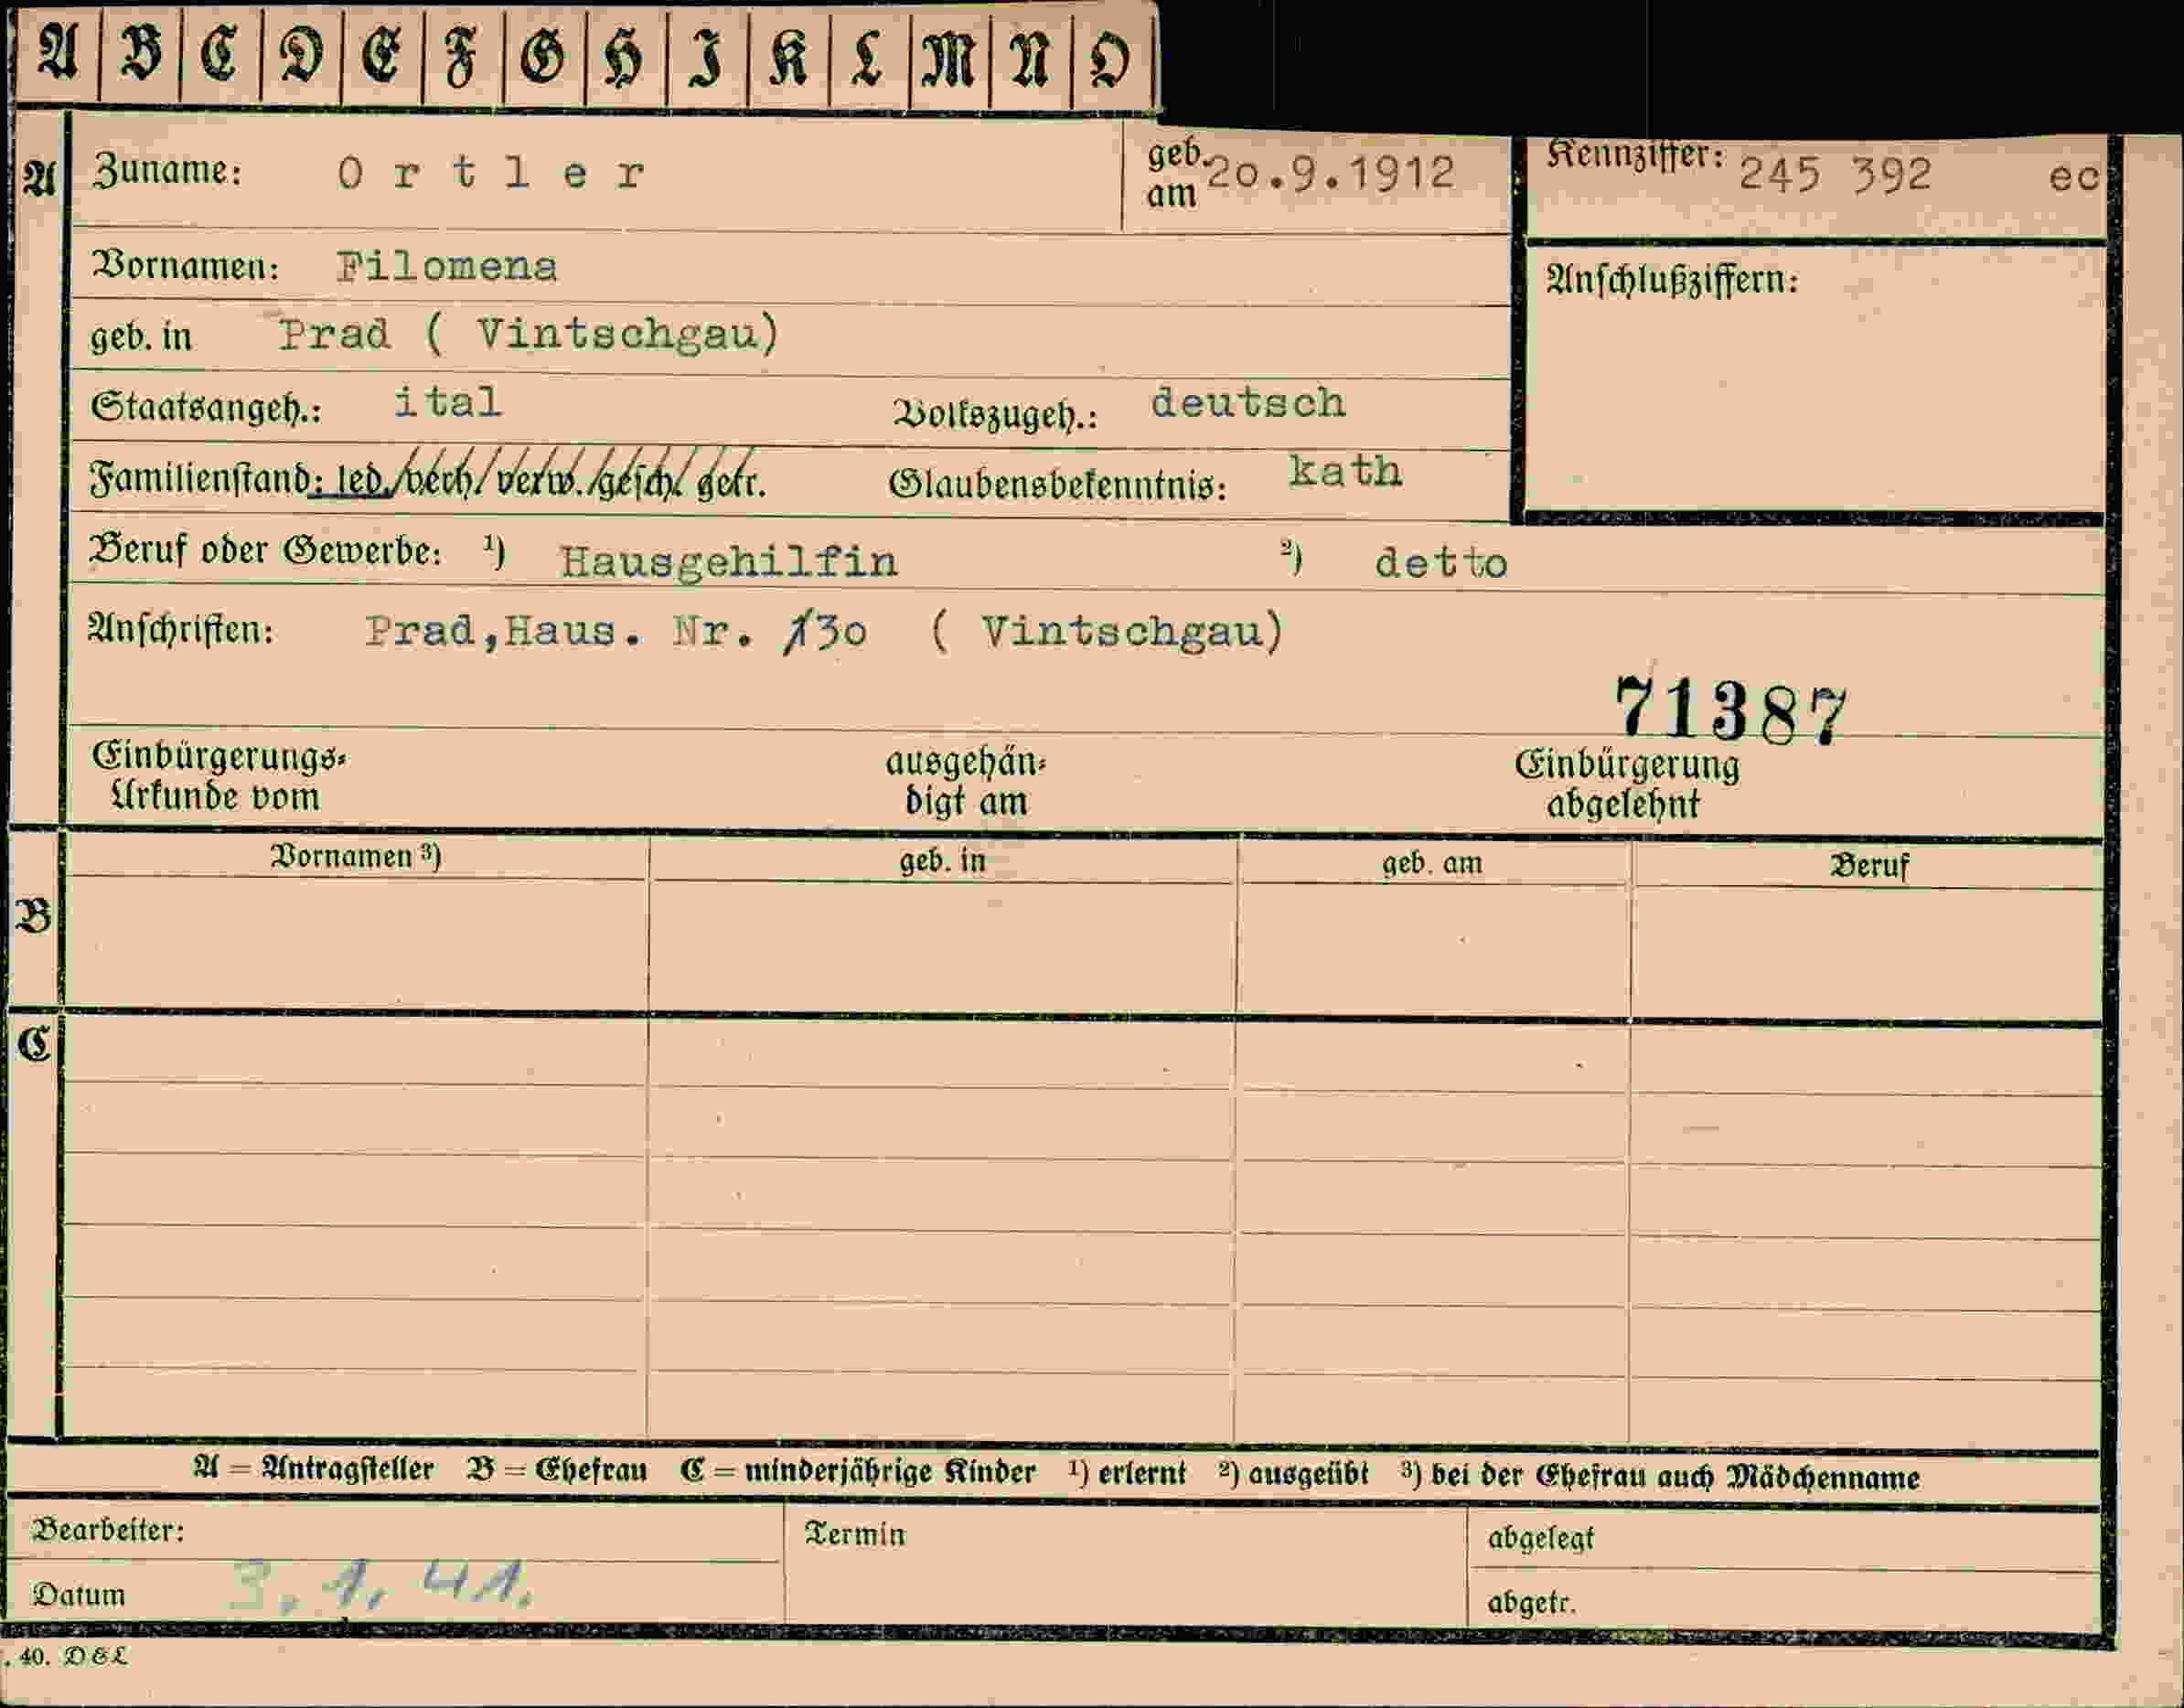 A B C D E F G H I K L M N O
A Zuname: Ortler geb. am 20.9.1912 Kennziffer: 245 392 ec
Vornamen: Filomena Anschlußziffern:
geb. in Prad ( Vintschgau)
Staatsangeh.: ital Volkszugeh.: deutsch
Familienstand: led./verh./verw./gesch./getr. Glaubensbekenntnis: kath
Beruf oder Gewerbe: ¹) Hausgehilfin ²) detto
Anschriften: Prad,Haus. Nr. 130 ( Vintschgau)
71387
Einbürgerungs- ausgehän- Einbürgerung
Urkunde vom digt am abgelehnt
Vornamen ³) geb. in geb. am Beruf
B
C
A = Antragsteller B = Ehefrau C = minderjährige Kinder ¹) erlernt ²) ausgeübt ³) bei der Ehefrau auch Mädchenname
Bearbeiter: Termin abgelegt
Datum 3. 1. 41. abgetr.
. 40. D & L